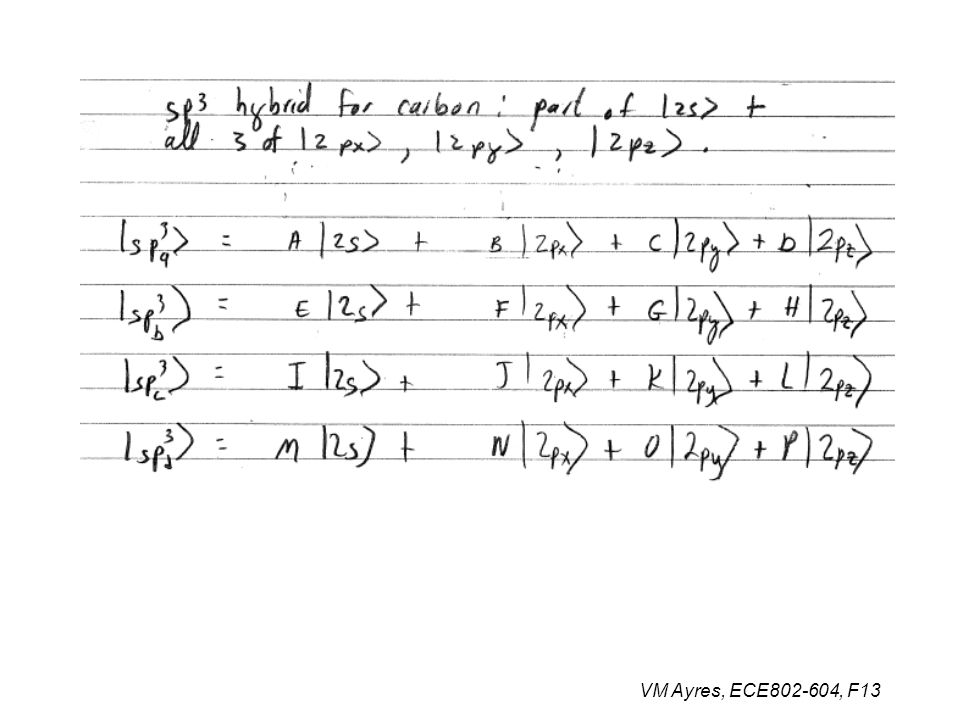 sp³ hybrid for carbon : part of |2s> +
all 3 of |2px> , |2py> , |2pz> .
|sp³a> = A |2s> + B |2px> + C |2py> + D |2pz>
|sp³b> = E |2s> + F |2px> + G |2py> + H |2pz>
|sp³c> = I |2s> + J |2px> + K |2py> + L |2pz>
|sp³d> = M |2s> + N |2px> + O |2py> + P |2pz>
VM Ayres, ECE802-604, F13